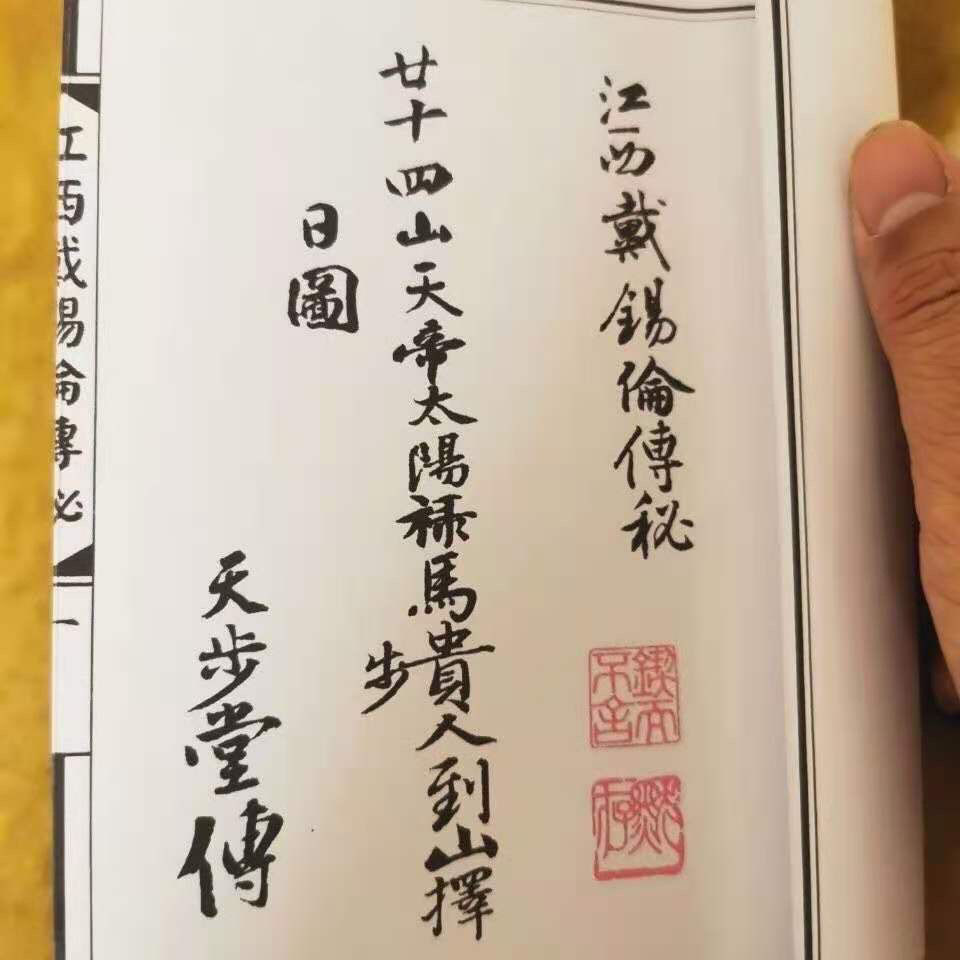 江西戴錫倫傳秘
鍥而不舍
廿十四山天帝太陽禄馬貴人到山擇
步
日圖
天步堂傳
江西戴錫倫傳秘
一